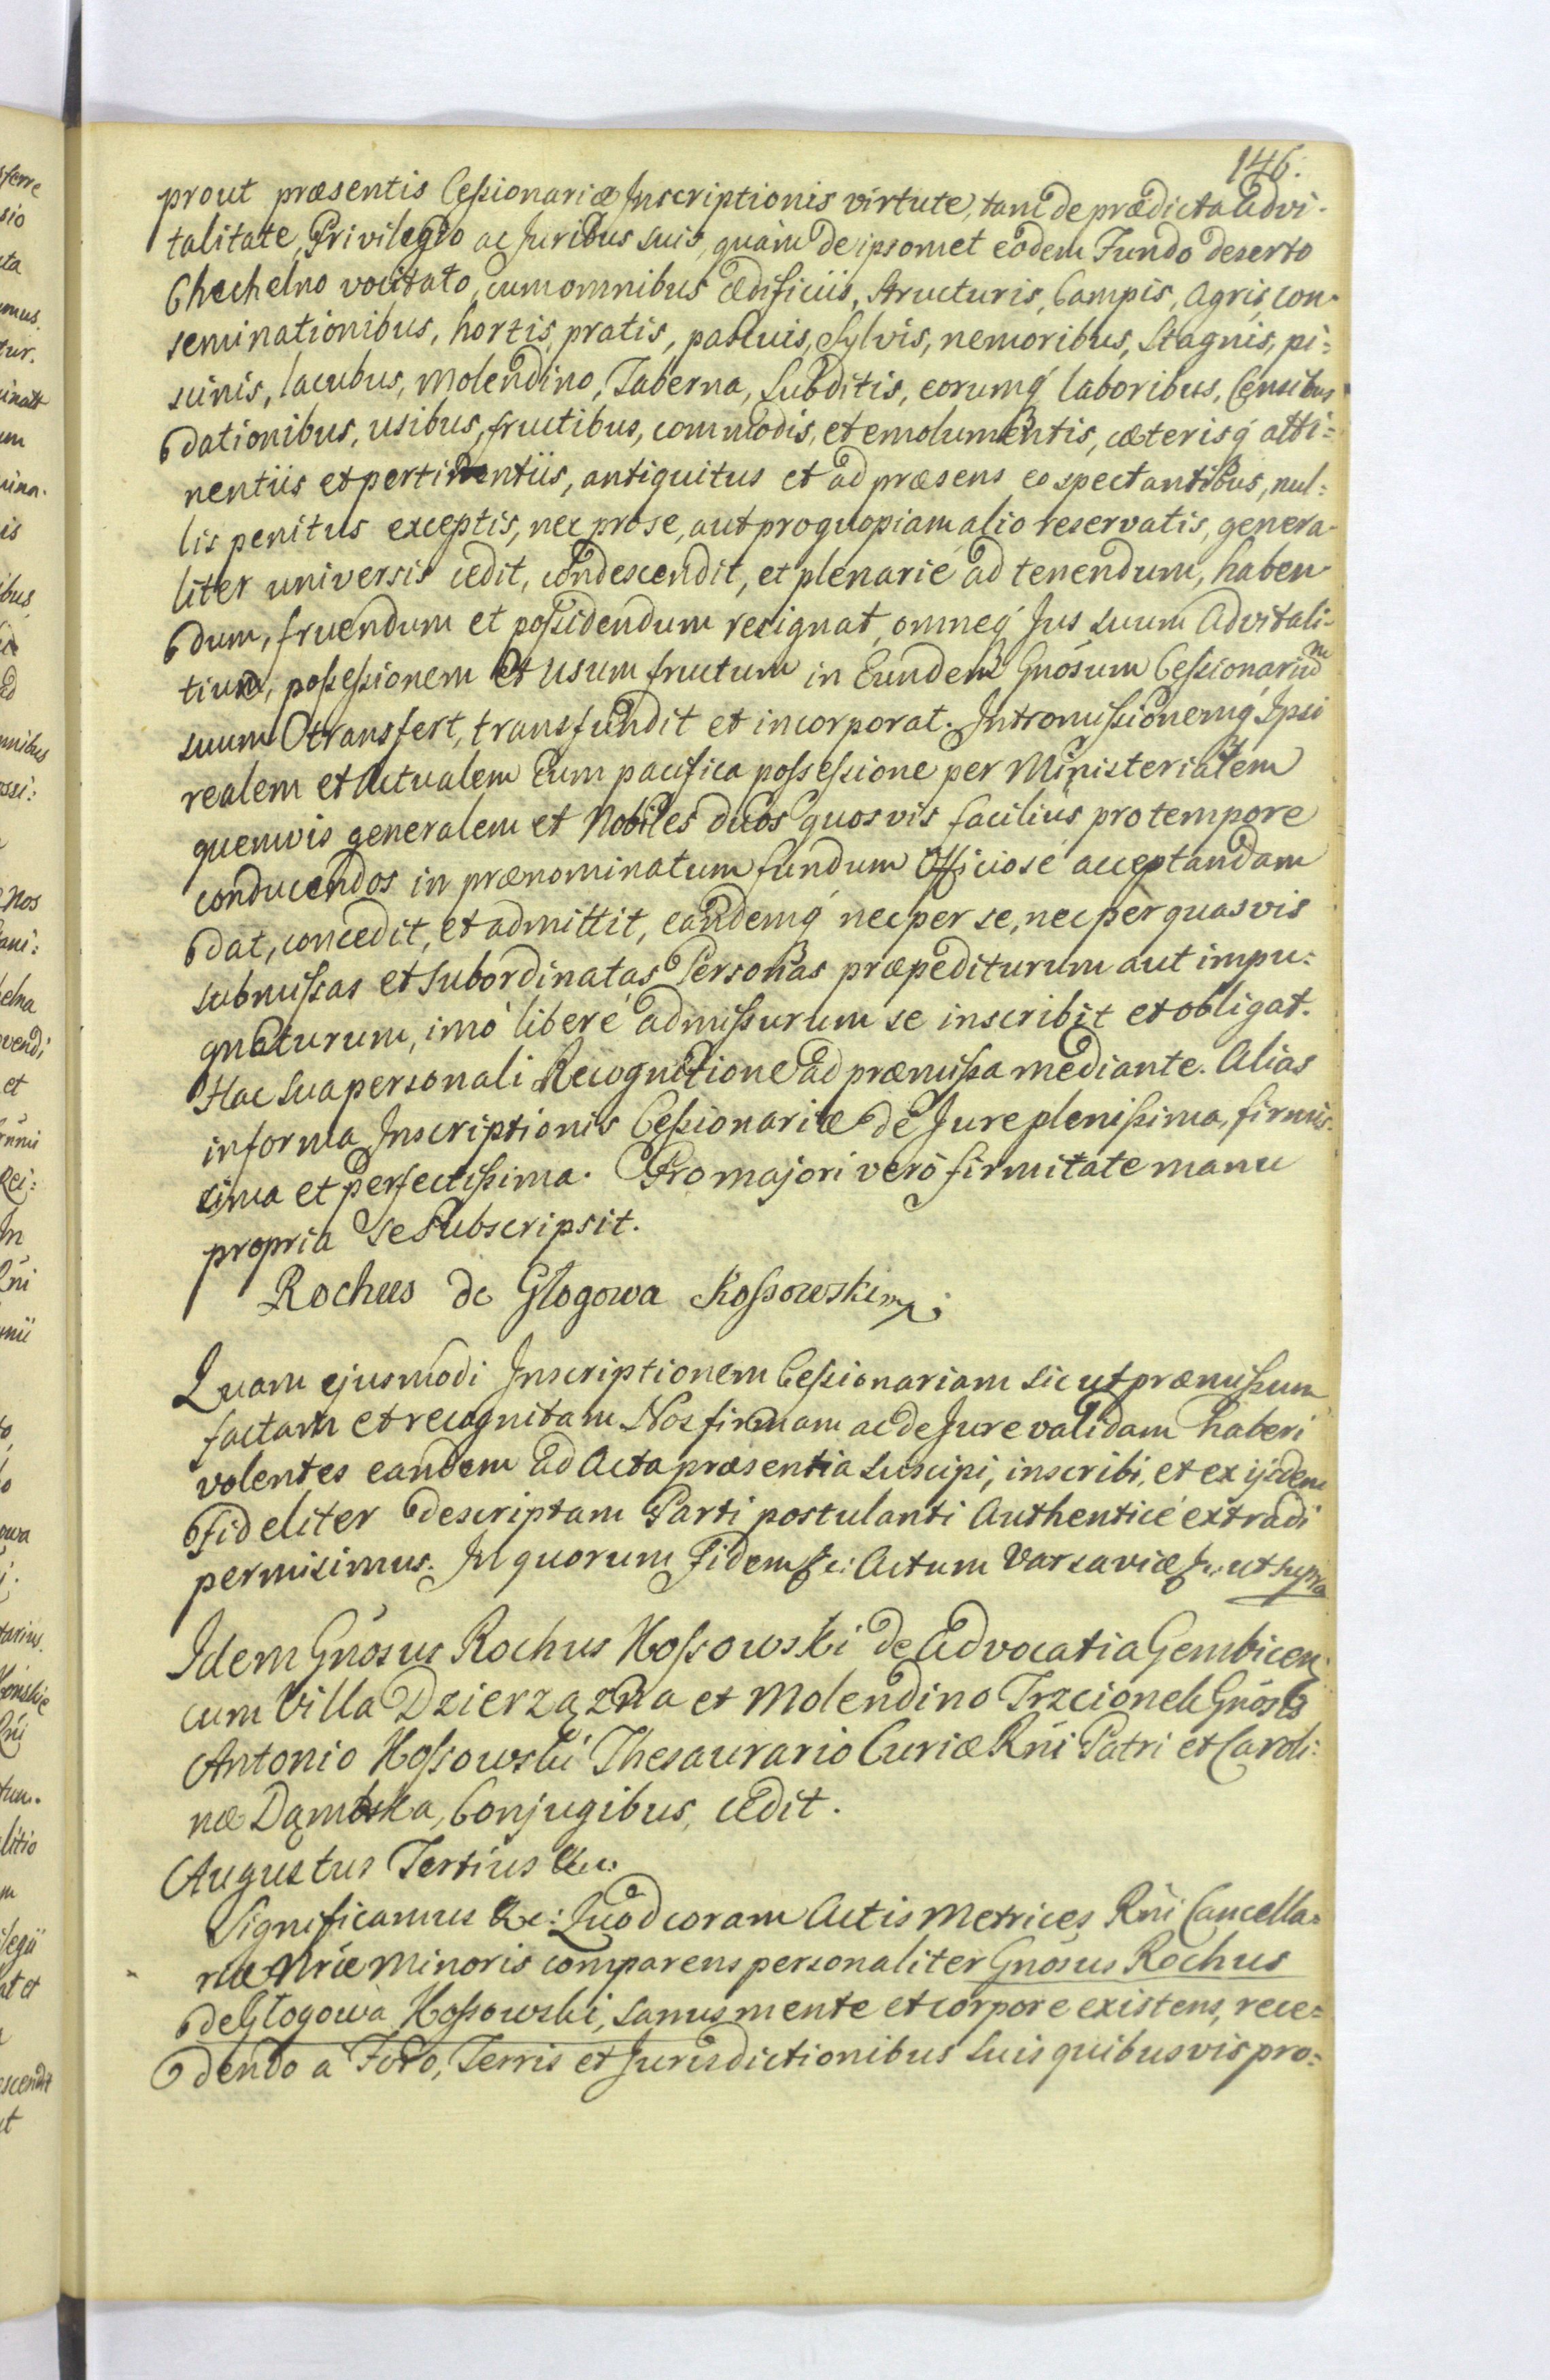 146.
prout præsentis Cessionariæ Inscriptionis virtute, tam de prædicta advi-
talitate, Privilegio ac Juribus suis, quàm de ipsomet eodem Fundo deserto
Chechelno vocitato, cum omnibus ædificiis, structuris, Campis, agris, con-
seminationibus, hortis, pratis, pascuis, Sylvis, nemoribus, Stagnis, pi:
scinis, lacubus, Molendino, Taberna, Subditis, eorumq́ laboribus, Censibus
dationibus, usibus, fructibus, commodis, et emolumentis, cæterisq́ atti:
nentiis et pertinentiis, antiquitus et ad præsens eo spectantibus, nul:
lis penitus exceptis, nec pro se, aut pro quopiam alio reservatis, genera-
liter universis cedit, condescendit, et plenarié ad tenendum, haben-
dum, fruendum et possidendum resignat, omneq́ Jus suum Advitali-
tium, possessionem et usumfructum in Eundem Gnosum Cessionariũm
suum transfert, transfundit et incorporat. Intromissionemq́ Ipsi
realem et Actualem cum pacifica possessione per Ministerialem
quemvis generalem et Nobiles duos quosvis facilius pro tempore
conducendos in prænominatum fundum Officiosé acceptandam
dat, concedit, et admittit, eandemq́ nec per se, nec per quasvis
submissas et subordinatas Personas præpediturum aut impu:
gnaturum, imò liberé admissurum se inscribit et obligat.
Hac sua personali Recognitione ad præmissa mediante. Alias
in forma Inscriptionis Cessionariæ de Jure plenissima, firmis-
sima et perfectissima. Pro majori verò firmitate manu
propria se subscripsit.
Rochus de Głogowa Kossowski mp;
Quam ejusmodi Inscriptionem Cessionariam sic ut præmissum
factam et recognitam Nos firmam ac de Jure validam haberi
volentes eandem ad Acta præsentia suscipi, inscribi, et ex ijsdem
fideliter descriptam Parti postulanti Authenticé extradi
permisimus. In quorum Fidem &c: Actum Varsaviæ &c: ut supra
Idem Gnosus Rochus Kossowski de Advocatia Gembicen:
cum Villa Dzierzązna et Molendino Trzcionek Gnosis
Antonio Kossowski Thesaurario Curiæ Rñi Patri et Caroli:
næ Dąmbska, Conjugibus, cedit.
Augustus Tertius &c:
Significamus &c: Quod coram Actis Metrices Rñi Cancella-
riæ Nræ Minoris comparens personaliter Gnosus Rochus
de Głogowa Kossowski, sanus mente et corpore existens, rece-
dendo a Foro, Terris et Jurisdictionibus suis quibusvis pro: